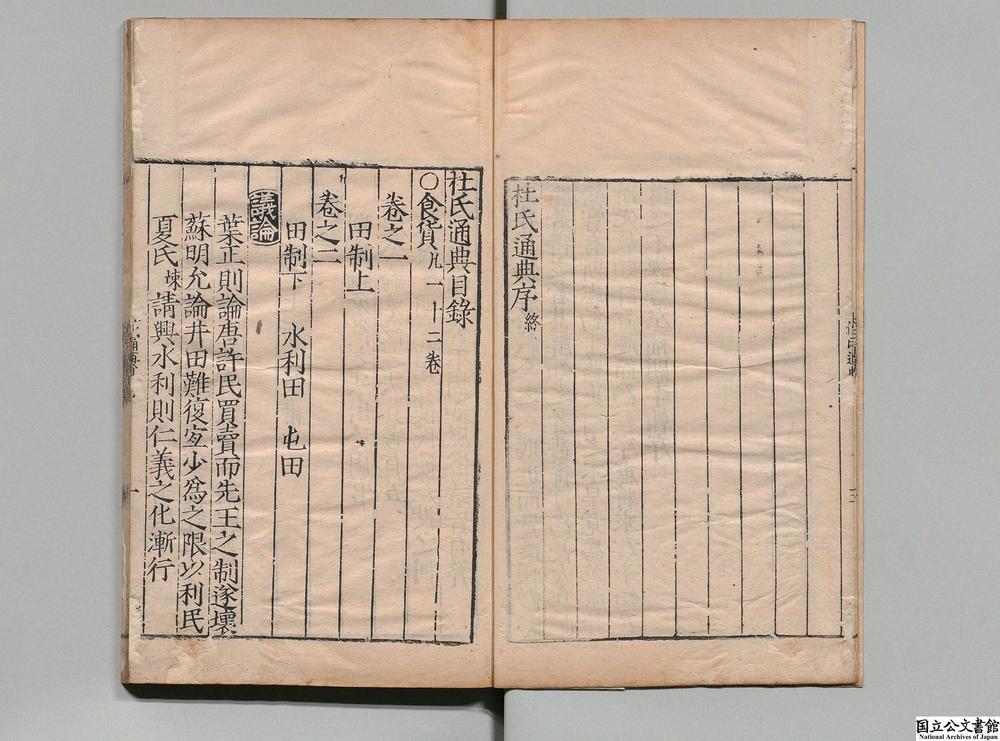 杜氏通典序終
杜氏通典目錄
○食貨凡一十二卷
卷之一
田制上
卷之二
田制下 水利田 屯田
議論
葉正則論唐許民買賣而先王之制遂壞
蘇明允論井田難復宜少爲之限以利民
夏氏竦請興水利則仁義之化漸行
一
国立公文書館
National Archives of Japan